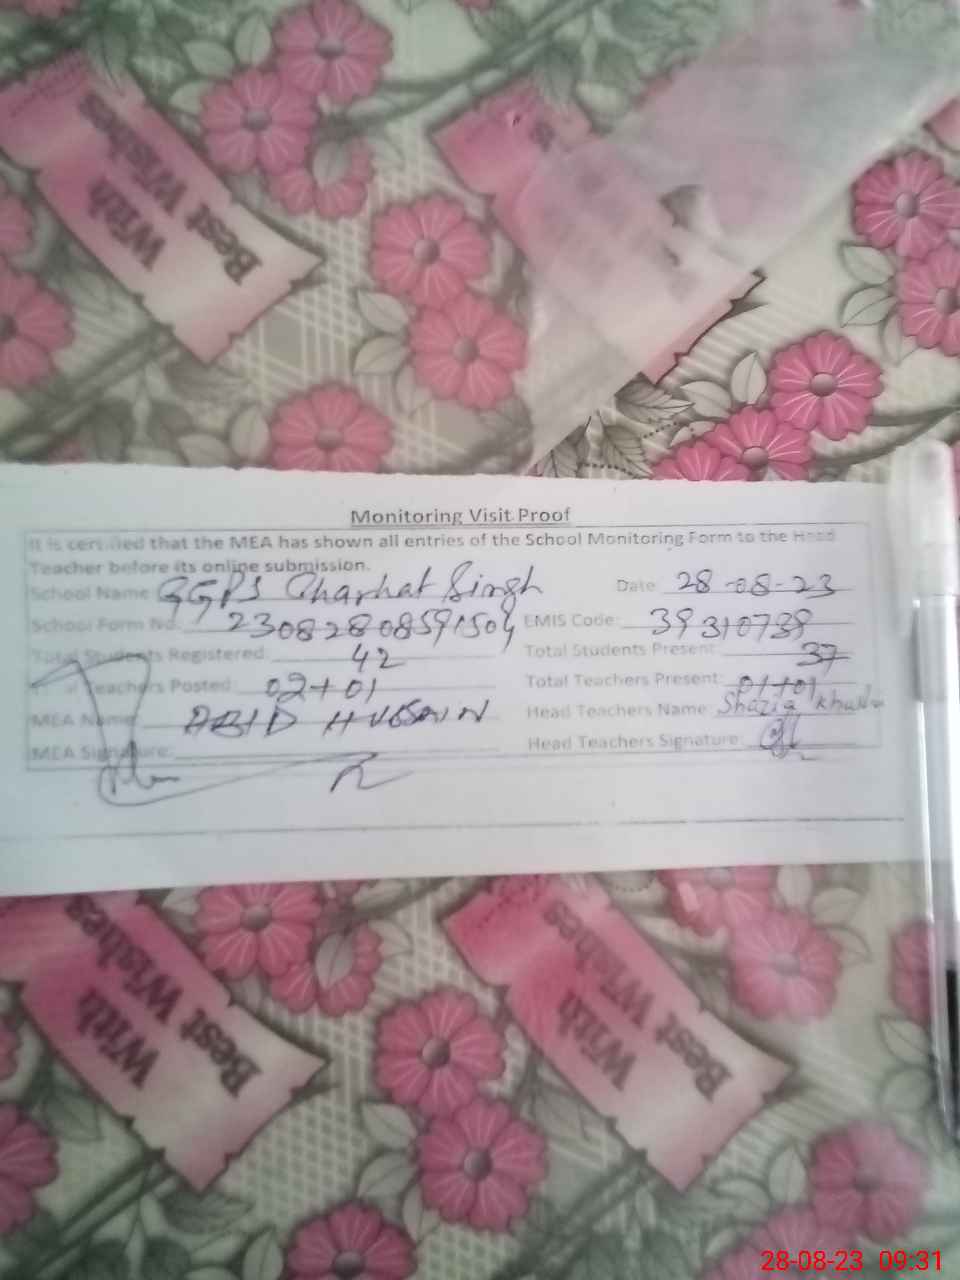 With
Best Wishes
Monitoring Visit Proof
It is certified that the MEA has shown all entries of the School Monitoring Form to the Head
Teacher before its online submission.
School Name GGPS Charhat Singh Date 28-08-23
School Form No. 23082808591504 EMIS Code: 39310739
Total Students Registered: 42 Total Students Present: 37
Total Teachers Posted: 02+01 Total Teachers Present: 01+01
MEA Name ABID HUSSAIN Head Teachers Name: Shazia
MEA Signature: Head Teachers Signature:
With
Best Wishes
With
Best Wishes
28-08-23 09:31